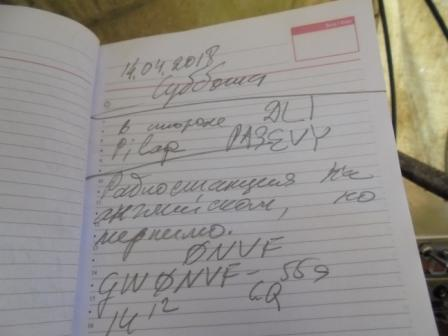 14.04.2018
Суббота
в стороне DL1
Pilap PA3EVY
Радиостанция на
английском, но
терпимо.
ØNVF
GWØNVF - 559
14 12 CQ